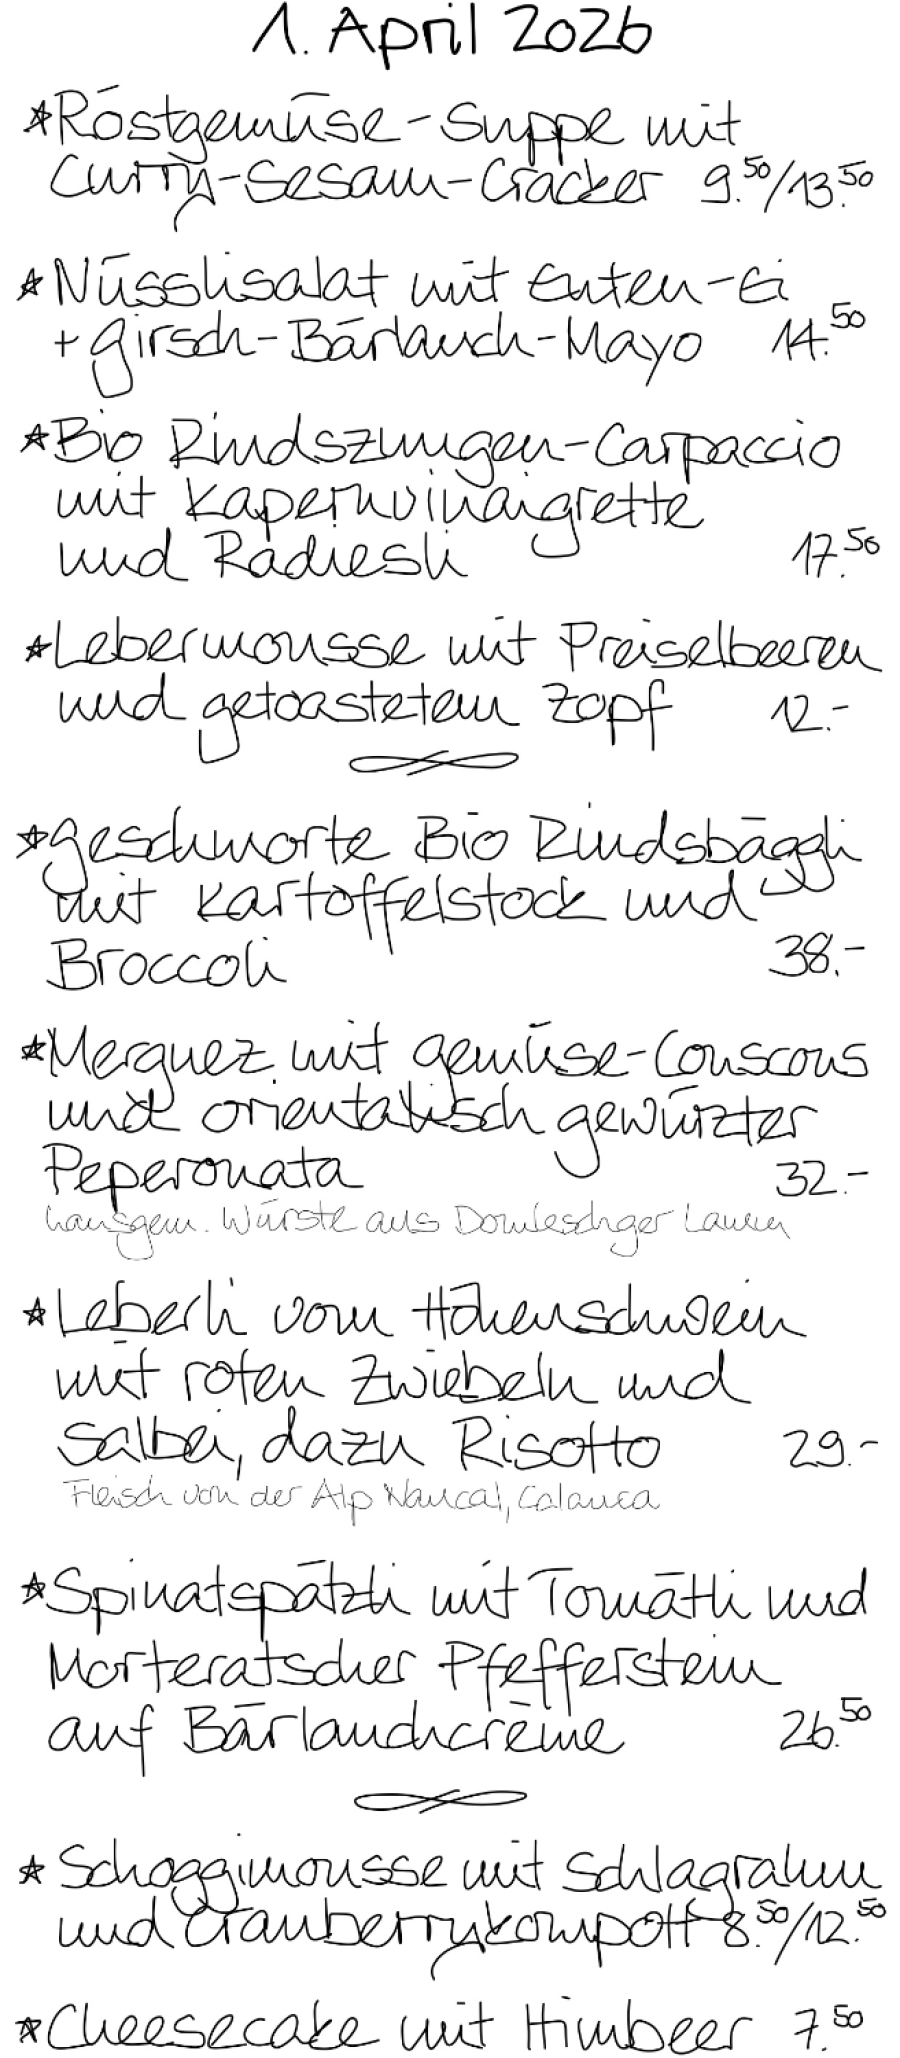 1. April 2026
*Röstgemüse-Suppe mit
Curry-Sesam-Cracker 9.50/13.50
*Nüsslisalat mit Enten-Ei
+ Girsch-Bärlauch-Mayo 14.50
*Bio Rindszungen-Carpaccio
mit Kapernvinaigrette
und Radiesli 17.50
*Lebermousse mit Preiselbeeren
und getoastetem Zopf 12.-
*Geschmorte Bio Rindsbäggli
mit Kartoffelstock und
Broccoli 38.-
*Merguez mit Gemüse-Couscous
und orientalisch gewürzter
Peperonata 32.-
hausgem. Würste aus Domleschger Lamm
*Leberli vom Höhenschwein
mit roten Zwiebeln und
Salbei, dazu Risotto 29.-
Fleisch von der Alp Naucal, Calanca
*Spinatspätzli mit Tomätli und
Morteratscher Pfefferstein
auf Bärlauchcrème 26.50
* Schoggimousse mit Schlagrahm
und Cranberrykompott 8.50/12.50
*Cheesecake mit Himbeer 7.50